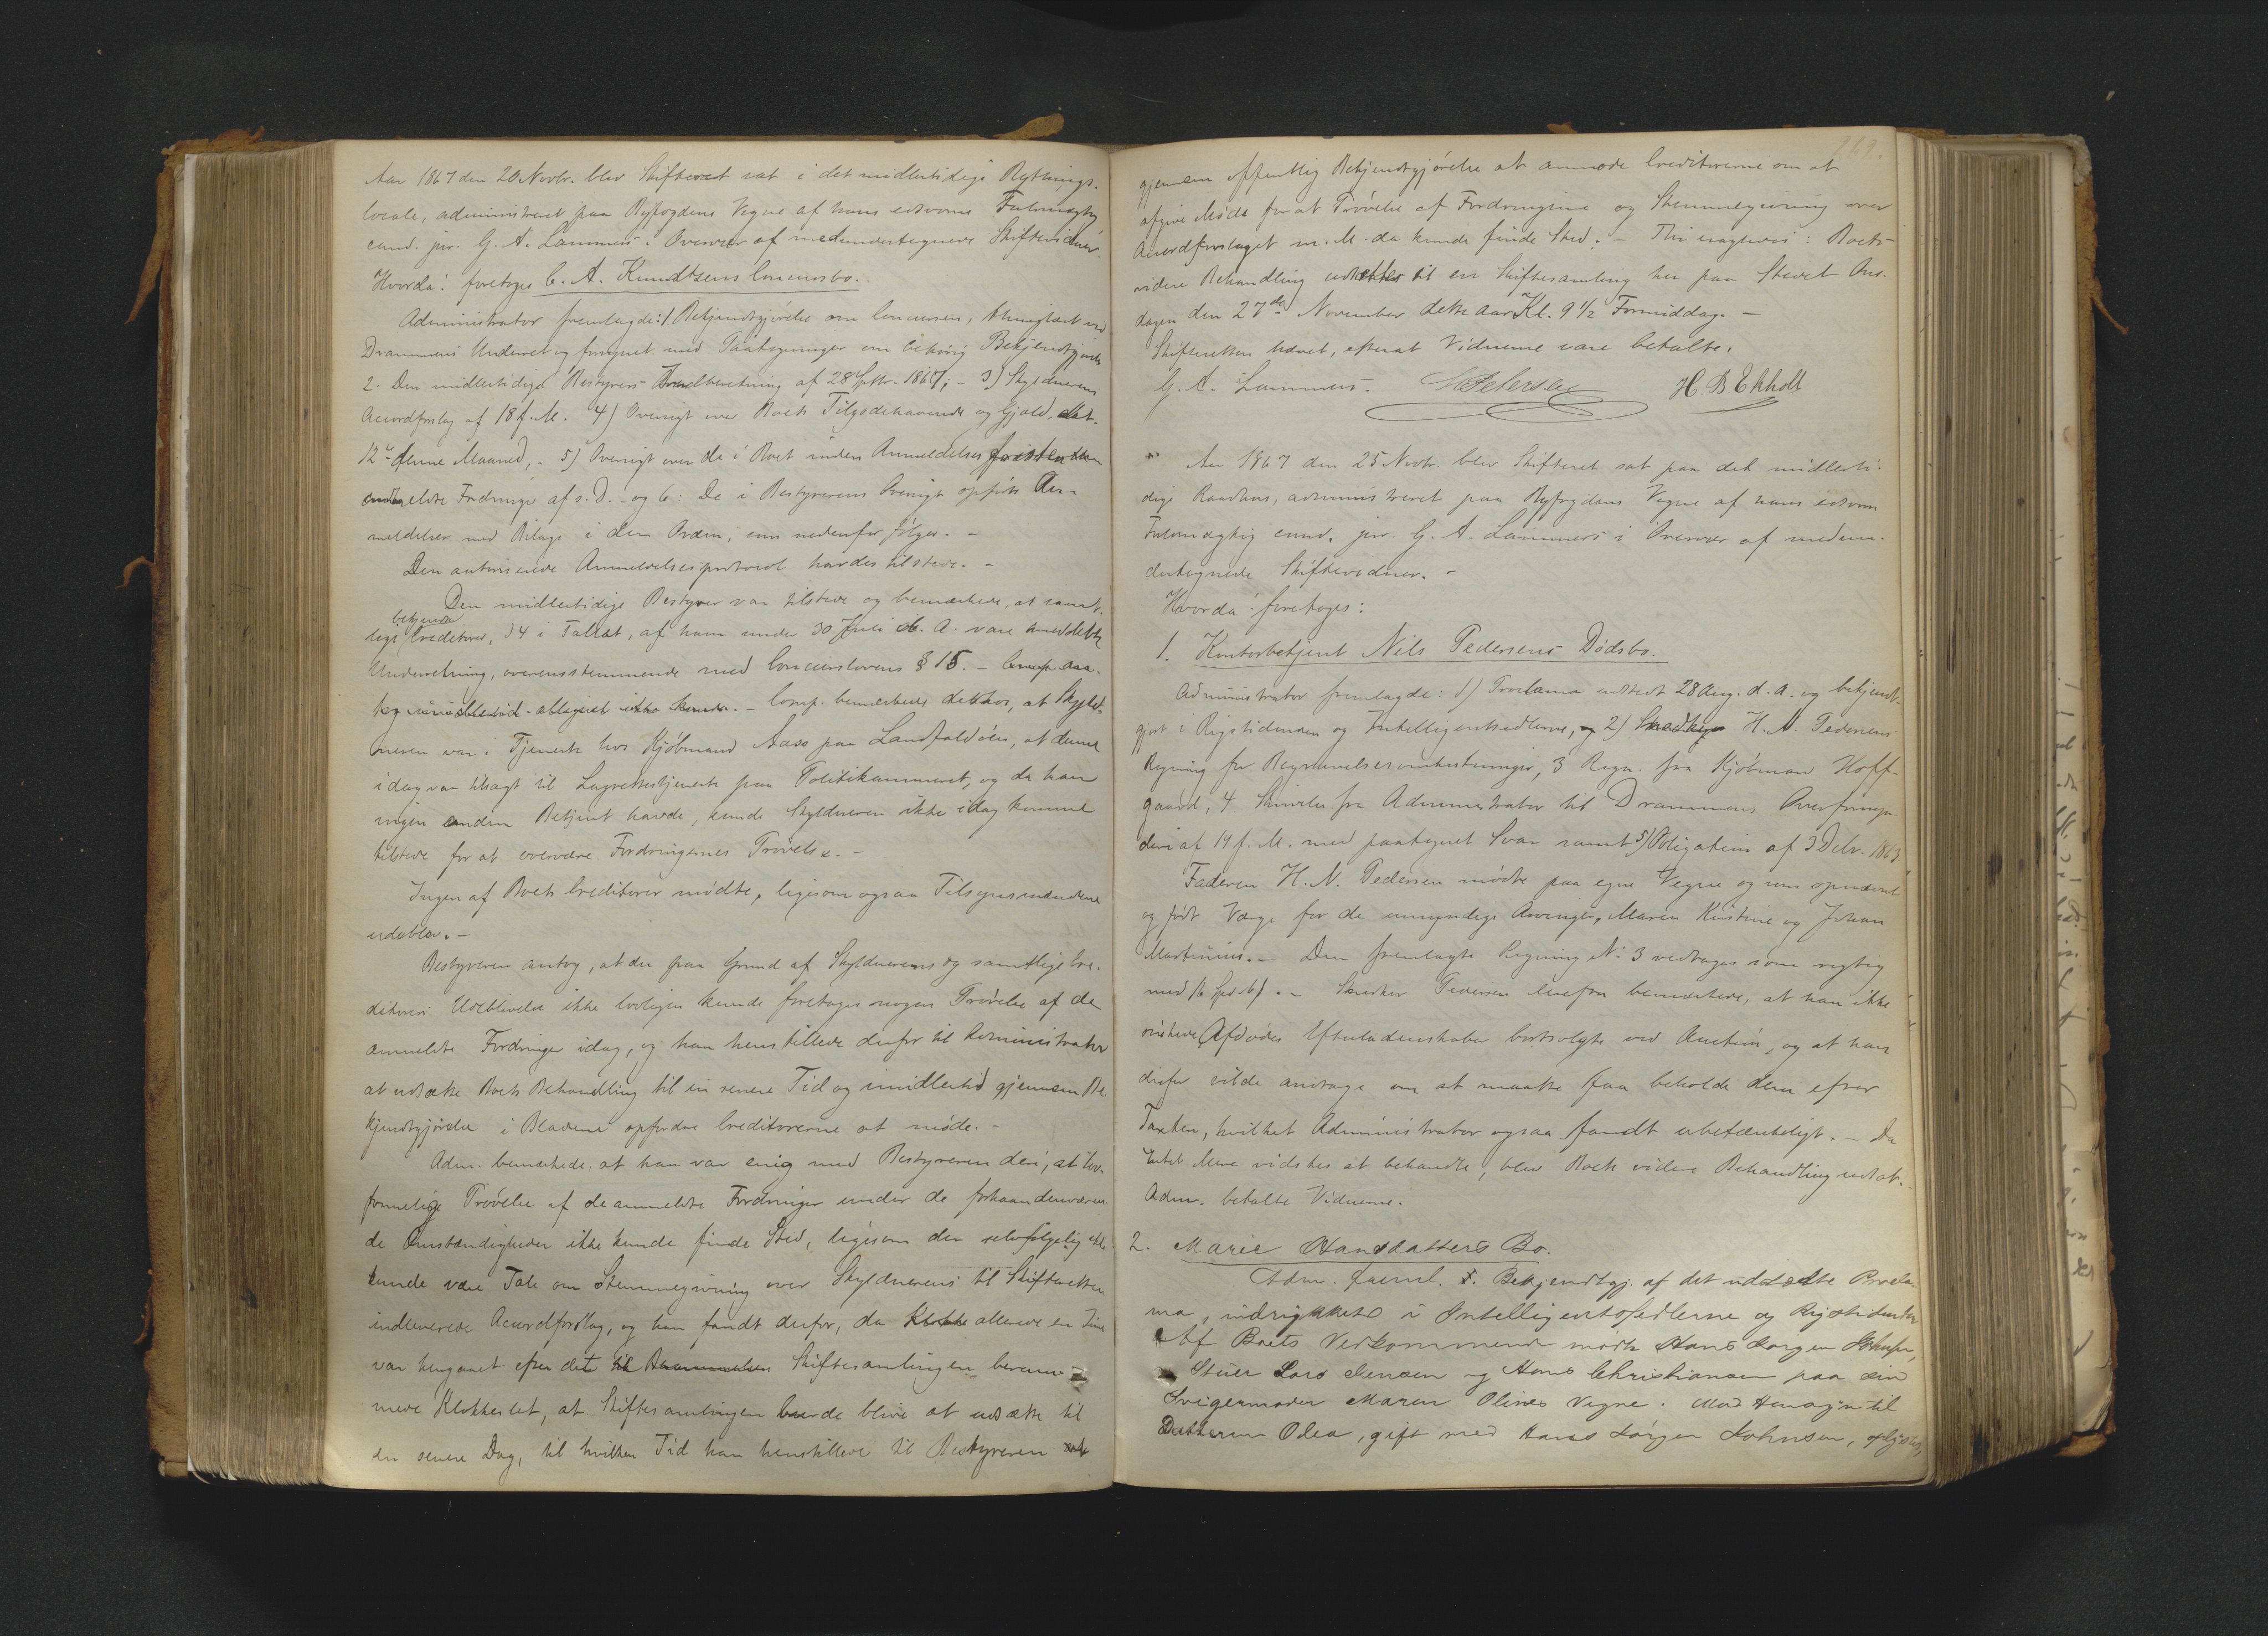 Aar 1867 den 20 Novbr. blev Skifteret sat i det midlertidige Rythings-
locale, administreret paa Byfogdens Vegne af hans edsvorne Fuldmægtig
cand. jur. G. A. Lammers i Overvær af medundertegnede Skiftevidner.
Hvorda: foretoges C. A. Knudtzens Concursbo.
Administrator fremlagde: 1. Bekjendtgjørelse om Concursen, thinglæst ved
Drammens Underret og forsynet med Paategninger om behørig Bekjendtgjørelse
2. Den midlertidige Bestyrers Indberetning af 28 Septbr. 1867, - 3) Skyldnerens
Accordforslag af 18 f. M. 4) Oversigt over Boets Tilgodehavende og Gjæld, dat.
12te denne Maaned, - 5) Oversigt over de i Boet inden Anmeldelsesfristen
anmeldte Fordringer af s. D. - og 6: De i Bestyrerens Oversigt opførte An-
meldelser med Bilage i den Orden, som nedenfor følger. -
Den autoriserede Anmeldelsesprotocol havdes tilstede. -
Den midlertidige Bestyrer var tilstede og bemærkede, at samt-
bekjendte
lige Creditorer, 34 i Tallet, af ham under 30 Juli d. A. vare meddelte
Underretning, overensstemmende med Concurslovens § 15. -
Comp. bemærkede derhos, at Skyld-
neren var i Tjeneste hos Kjøbmand Aass paa Landfaldøen, at denne
idag var tilsagt til Lagrettestjeneste paa Politikammeret, og da han
ingen anden Betjent havde, kunde Skyldneren ikke idag komme
tilstede for at overvære Fordringernes Prøvelse. -
Ingen af Boets Creditorer mødte, ligesom ogsaa Tilsynsmændene
udeblev. -
Bestyreren antog, at der paa Grund af Skyldnerens og samtlige Cre-
ditorers Udeblivelse ikke lovligen kunde foretages nogen Prøvelse af de
anmeldte Fordringer idag, og han henstillede derfor til Administrator
at udsætte Boets Behandling til en senere Tid og imidlertid gjennem Be-
kjendtgjørelse i Bladene opfordre Creditorerne at møde. -
Adm. bemærkede, at han var enig med Bestyreren deri, at lov-
formelig Prøvelse af de anmeldte Fordringer under de forhaandenværen-
de Omstændigheder ikke kunde finde Sted, ligesom der selvfølgelig ikke
kunde være Tale om Stemmegivning over Skyldnerens til Skifteretten
indleverede Accordforslag, og han fandt derfor, da allerede en Time
var hengaaet efter det til Skiftesamlingen beram-
mede Klokkeslet, at Skiftesamlingen burde blive at udsætte til
en senere Dag, til hvilken Tid han henstillede til Bestyreren
gjennem offentlig Bekjendtgjørelse at anmode Creditorerne om at
afgive Møde for at Prøvelse af Fordringerne og Stemmegivning over
Accordforslaget m. M. da kunde finde Sted. - Thi eragtedes: Boets
videre Behandling udsættes til en Skiftesamling her paa Stedet Ons-
dagen den 27de November dette Aar Kl. 9 1/2 Formiddag. -
Skifteretten hævet, efterat Vidnerne vare betalte.
G. A. Lammers. Petersen H. B Ekholt
Aar 1867 den 25 Novbr. blev Skifteret sat paa det midlerti-
dige Raadhus, administreret paa Byfogdens Vegne af hans edsvorne
Fuldmægtig cand. jur. G. A. Lammers i Overvær af medun-
dertegnede Skiftevidner. -
Hvorda foretoges:
1. Kontorbetjent Nils Pedersens Dødsbo.
Administrator fremlagde: 1) Proclama udstedt 28 Aug. d. A. og bekjendt-
gjort i Rigstidenden og Intelligentssedlerne, 2) Snedker H. N. Pedersens
Regning for Begravelsesomkostninger, 3 Regn. fra Kjøbmand Hoff-
gaard, 4. Skrivelse fra Administrator til Drammens Overformyn-
deri af 14 f. M. med paategnet Svar samt 5) Obligation af 3 Debr. 1863
Faderen H. N. Pedersen mødte paa egne Vegne og som opnævnt
og født Værge for de umyndige Arvinger, Maren Kirstine og Johan
Martinius. - Den fremlagte Regning No 3 vedtages som rigtig
med - Snedker Pedersen bemærkede, at han ikke
ønskede Afdødes Efterladenskaber bortsolgte ved Auction, og at han
derfor vilde andrage om at maatte faa beholde dem efter
Taxten, hvilket Administrator ogsaa fandt ubetænkeligt. - Da
Intet Mere vidstes at behandle, blev Boets videre Behandling udsat.
Adm. betalte Vidnerne.
2. Marie Hansdatters Bo.
Adm. freml. 1. Bekjendtgj. af det udstedte Procla-
ma, indrykket i Intelligentssedlerne og Rigstidenden
Af Boets Vedkommende mødte Hans Jørgen Johnsen,
Stuer Lars Jensen og Hans Christiansen paa sin
Svigermoder Maren Olines Vegne. Med Hensyn til
Datteren Olea, gift med Hans Jørgen Johnsen, oplystes,